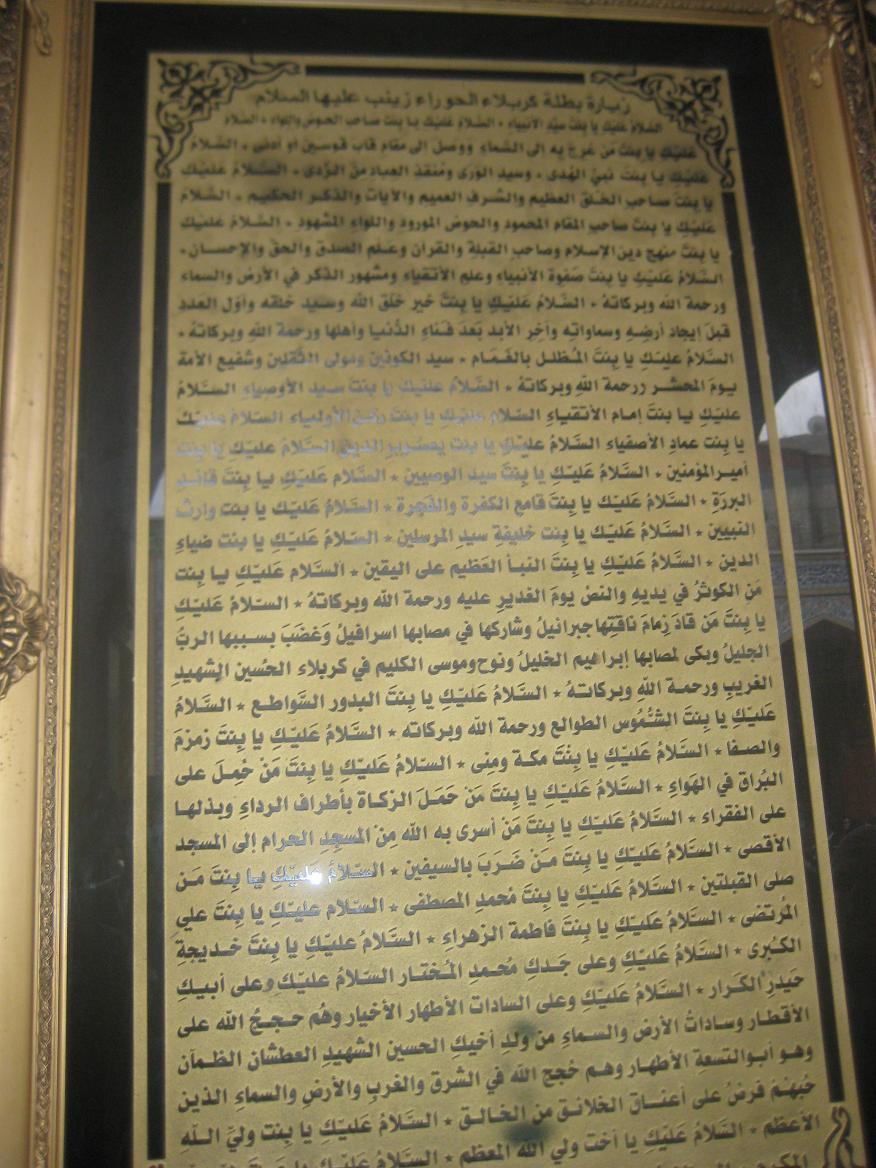 زيارة بطلة كربلاء الحوراء زينب عليها السلام
السَّلامُ عَلَيْكِ يا بِنتَ سيِّدِ الأنبياء * السَّلامُ عَلَيكِ يا بنتَ صاحبِ الحوضِ واللواءِ * السَّلامُ
عَلَيْكِ يا بِنتَ مَن عُرِجَ بِهِ إلى السَّماءِ وَوُصِلَ إلى مقامِ قابَ قوسينِ أو أدنى * السَّلامُ
عَلَيْكِ يا بِنتَ نبيِّ الهُدى * وسيدِ الوَرى ومُنقذِ العبادِ مِنَ الرَّدى * السَّلامُ عليكِ
يا بِنتَ صاحبِ الخُلقِ العظيمِ والشرفِ العميمِ والآياتِ والذكرِ الحكيمِ * السَّلامُ
عَلَيْكِ يا بِنتَ صاحبِ المقامِ المحمودِ والحوضِ المورودِ واللواءِ المشهود * السَّلامُ عليكِ
يا بِنتَ منهجِ دينِ الإسلامِ وصاحبِ القبلةِ والقرآنِ وعلمِ الصدقِ والحقِّ والإحسانِ *
السَّلامُ عَلَيْكِ يا بِنتَ صَفوةِ الأنبياءِ وعلمِ الأتقياءِ ومشهورِ الذكرِ في الأرضِ والسماءِ
ورحمة الله وبركاته * السَّلامُ عَلَيْكِ يا بِنتَ خيرِ خَلقِ الله وسيدِ خلقه وأوَّلِ العددِ
قبلَ إيجادِ أرضِهِ وسماواتِهِ وآخرِ الأبدِ بَعدَ فناءِ الدُّنيا وأهلها ورحمة الله وبركاتهُ *
السَّلامُ عليْكِ يا بِنتَ المُظلل بالغَمَام * سيد الكونين ومولى الثَّقلينِ وشفيعِ الأمة
يومَ المحشرِ ورحمة اللهِ وبركاتهُ * السَّلامُ عليكِ يا بنتَ سيدِ الأوصياءِ السَّلامُ
عليكِ يا بنتَ إمامِ الأتقياءِ السَّلام عليكِ يا بنت ركنِ الأولياءِ السّلامُ عليكِ
يا بنت عمادِ الأصفياءِ السَّلامُ عليْكِ يا بنت يعسُوبِ الدينِ السَّلامُ عليكِ يا بنت
أميرِ المؤمنين * السَّلامُ عَلَيْكِ يا بِنتَ سيد الوصيين * السَّلام عَلَيْكِ يا بِنتَ قائدِ
البررةِ * السَّلامُ عَلَيْكِ يا بِنتَ قامعِ الكفرة والفَجرة * السَّلامُ عَلَيْكِ يا بنت وارثِ
النبيين * السَّلامُ عَلَيْكِ يا بِنت خليفةِ سيدِ المرسلين * السَّلامُ عَلَيْكِ يا بنت ضياءِ
الدين * السَّلامُ عَلَيْكِ يا بِنتَ النبأ العَظيمِ على اليقين * السَّلام عَلَيْكِ يا بِنت
مَنِ الكوثرُ في يديهِ والنصُ يومَ الغديرِ عليه ورحمة الله وبركاتهُ * السَّلامُ عَلَيْكِ
يا بِنتَ مَن قادَ زِمامَ ناقتِها جبرائيلُ وشاركها في مصابِها اسرافيلُ وَغَضَبَ بسببها الربُّ
الجليلُ وبكى لمصابها إبراهيم الخليلُ ونوح وموسى الكليم في كربلاء الحُسين الشهيدِ
الغريبِ ورحمة اللهِ وبركاتهُ * السَّلامُ عَلَيْكِ يا بِنتَ البدور السَّواطع * السَّلامُ
عَلَيْكِ يا بِنتَ الشُّمُوس الطوالع ورحمة الله وبركاته * السَّلامُ عَلَيْكِ يا بِنتَ زمزمَ
والصفا * السَّلامُ عَلَيْكِ يا بِنْتَ مكة ومِنى * السَّلامُ عَلَيْكِ يا بِنتَ مَنْ حُمِلَ على
البُراقِ في الهَواءِ * السَّلامُ عَلَيْكِ يا بِنتَ مَن حَمَلَ الزكاةَ بأطرافِ الرداءِ وبذلها
على الفقراء * السَّلامُ عَلَيْكِ يا بِنتَ مَنْ أسرى به الله مِنْ المسجد الحرام إلى المسجد
الأقصى * السَّلامُ عَلَيْكِ يا بِنتَ مَنْ ضَرَبَ بالسيفين * السَّلامُ عَلَيْكِ يا بِنتَ مَن
صلى القبلتين * السَّلامُ عَلَيْكِ يا بِنتَ مُحمدِ المصطفى * السَّلام عليْكِ يا بِنتَ علي
المُرتضى * السَّلامُ عَلَيْكِ يا بِنتَ فاطمة الزهراءِ * السَّلامُ عَلَيْكِ يا بِنتَ خديجةِ
الكبرى * السَّلامُ عَلَيْكِ وعلى جَدكِ مُحمدِ المُختار السّلامُ عليْكِ وعلى أبيكِ
حَيدرِ الكَرار * السَّلامُ عَلَيْكِ وعلى السادات الأطهارِ الأخيارِ وهُم حججُ الله على
الأقطارِ وساداتُ الأرض والسماءِ من ولدِ أخيكِ الحسين الشهيدِ العطشان الظمآن
وهو أبو التسعة الأطهار وهم حُججِ الله في الشرقِ والغربِ والأرضِ والسماءِ الذين
حُبهمْ فرضٌ على أعناقِ الخلائقِ من الخالقِ * السَّلامُ عَلَيْكِ يا بِنت وليِّ اللهِ
الأعظم * السَّلامُ عَلَيْكِ يا أخت ولي الله المعظم * السَّلامُ عَلَيْكِ يا